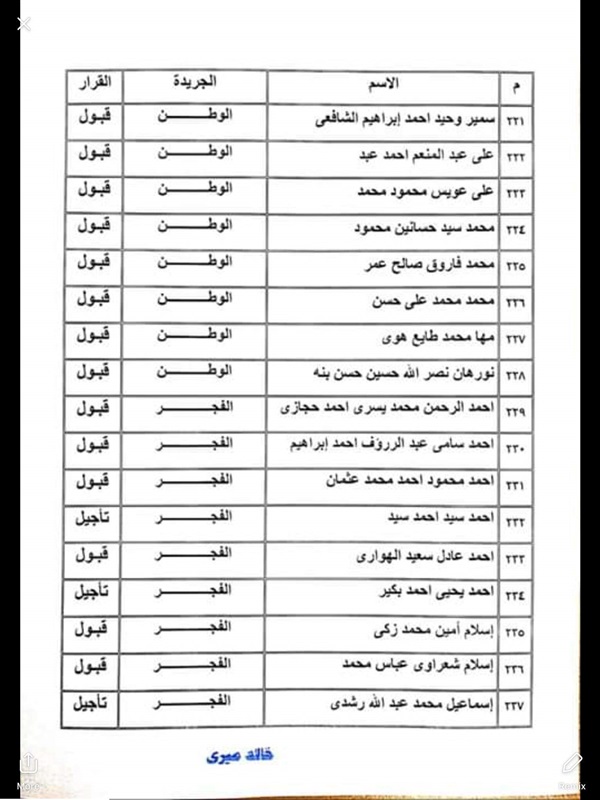 م الاسم الجريدة القرار
٢٢١ سمير وحيد احمد إبراهيم الشافعى الوطــــــن قبول
٢٢٢ على عبد المنعم احمد عبد الوطــــــن قبول
٢٢٣ على عويس محمود محمد الوطــــــن قبول
٢٢٤ محمد سيد حسانين محمود الوطــــــن قبول
٢٢٥ محمد فاروق صالح عمر الوطــــــن قبول
٢٢٦ محمد محمد على حسن الوطــــــن قبول
٢٢٧ مها محمد طايع هوى الوطــــــن قبول
٢٢٨ نورهان نصر الله حسين حسن بنه الوطــــــن قبول
٢٢٩ احمد الرحمن محمد يسرى احمد حجازى الفجــــــر قبول
٢٣٠ احمد سامى عبد الررؤف احمد إبراهيم الفجــــــر قبول
٢٣١ احمد محمود احمد محمد عثمان الفجــــــر قبول
٢٣٢ احمد سيد احمد سيد الفجــــــر تأجيل
٢٣٣ احمد عادل سعيد الهوارى الفجــــــر قبول
٢٣٤ احمد يحيى احمد بكير الفجــــــر تأجيل
٢٣٥ إسلام أمين محمد زكى الفجــــــر قبول
٢٣٦ إسلام شعراوى عباس محمد الفجــــــر قبول
٢٣٧ إسماعيل محمد عبد الله رشدى الفجــــــر تأجيل
خالد ميرى